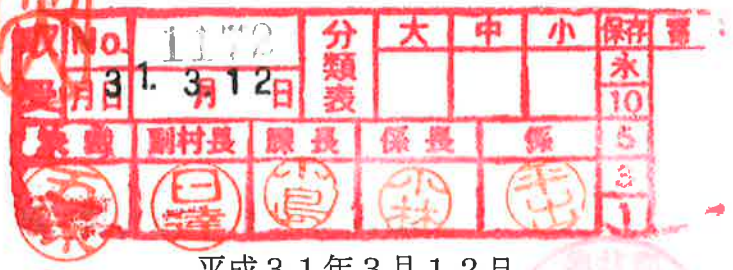 収 No. 1172 分類表 大 中 小 保存
受 月日 31. 3月12日 永
10
村長 副村長 課長 係長 係 5
日達 小島 小林 平出 3
1
平成31年3月12日